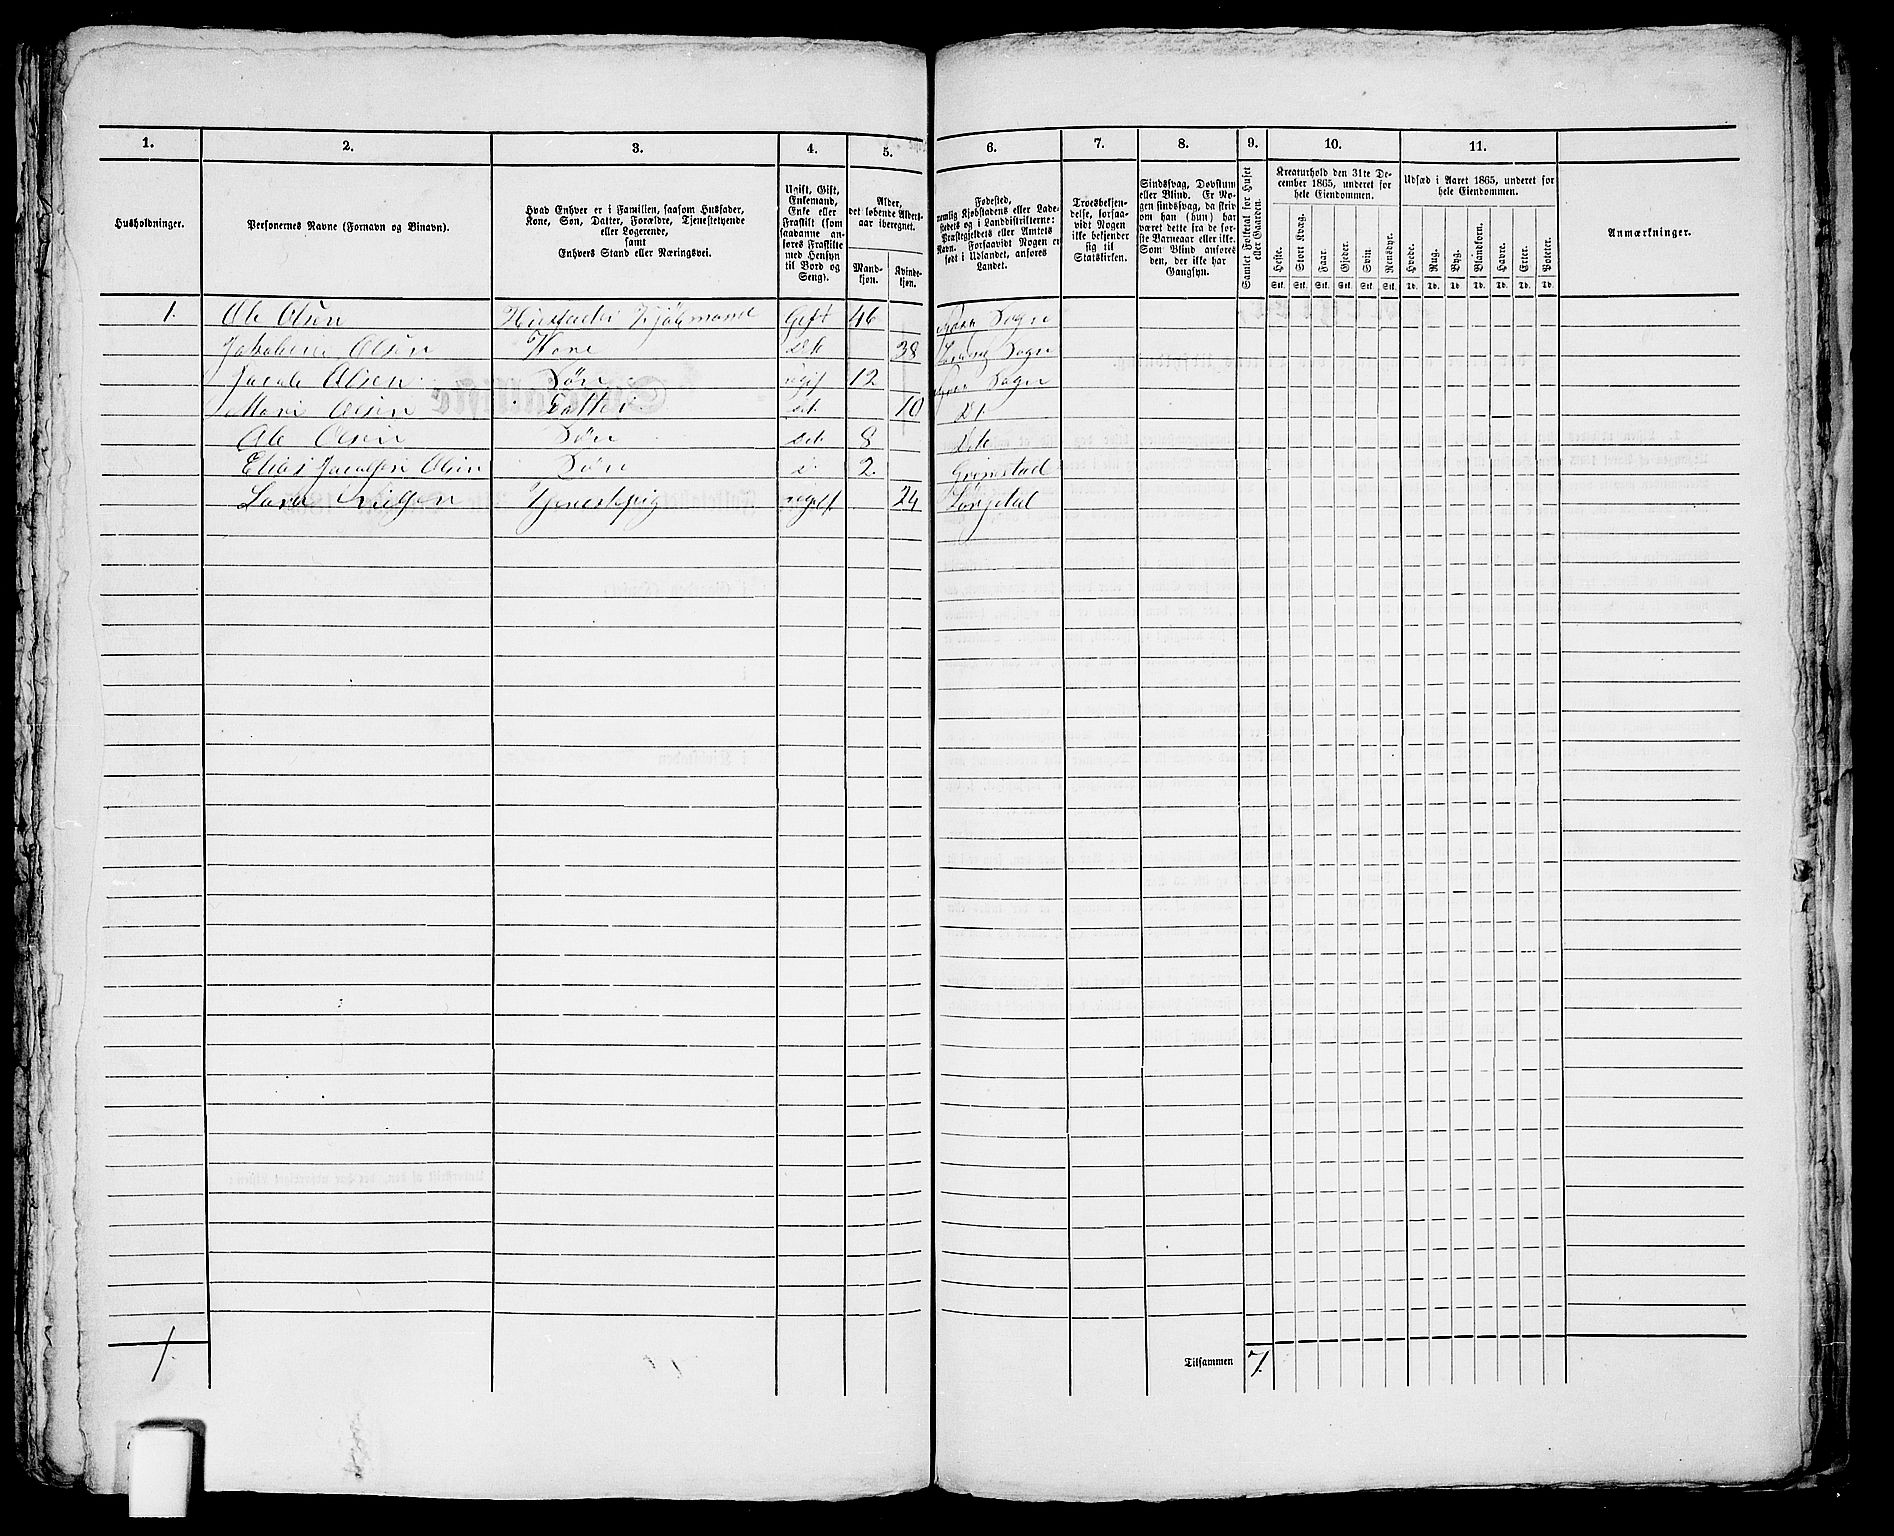 1. 2. 3. 4. 5. 6. 7. 8. 9. 10. 11.
Husholdninger.
Personernes Navne (Fornavn og Binavn).
Hvad Enhver er i Familien, saasom Husfader,
Kone, Søn, Datter, Forældre, Tjenestetyende
eller Logerende,
samt
Enhvers Stand eller Næringsvei.
Ugift, Gift,
Enkemand,
Enke eller
Fraskilt (som
saadanne an-
føres Fraskilte
med Hensyn
til Bord og
Seng).
Alder,
det løbende Alders-
aar iberegnet.
Mand-
kjøn.
Kvinde-
kjøn.
Fødested,
nemlig Kjøbstadens eller Lade-
stedets og i Landdistrikterne:
Præstegjeldets eller Amtets
Navn. Forsaavidt Nogen er
født i Udlandet, anføres
Landet.
Troesbekjen-
delse, forsaa-
vidt Nogen
ikke bekjender
sig til
Statskirken.
Sindssvag, Døvstum
eller Blind. Er No-
gen sindssvag, da skriv
om han (hun) har
været dette fra de før-
ste Barneaar eller ikke.
Som Blind anføres
den, der ikke har
Gangsyn.
Samlet Folketal for Huset
eller Gaarden.
Kreaturhold den 31te De-
cember 1865, underet for
hele Eiendommen.
Heste. Stort Kvæg. Faar. Gjeder. Svin. Rensdyr.
Stk. Stk. Stk. Stk. Stk. Stk.
Udsæd i Aaret 1865, underet for
hele Eiendommen.
Hvede. Rug. Byg. Blandkorn. Havre. Erter. Poteter.
Td. Td. Td. Td. Td. Td. Td.
Anmærkninger.
1. Ole Olsen Husfader Gift 46 Sogn
Olsen Kone dt. 38 Sogn
Jacob Olsen Søn ugif 12 Sogn
Mari Olsen Datter dt. 10 Dt
Ole Olsen Søn dt. 8 Dt.
Elias Olsen Søn 2. Grimstad
24
1.
Tilsammen 7.